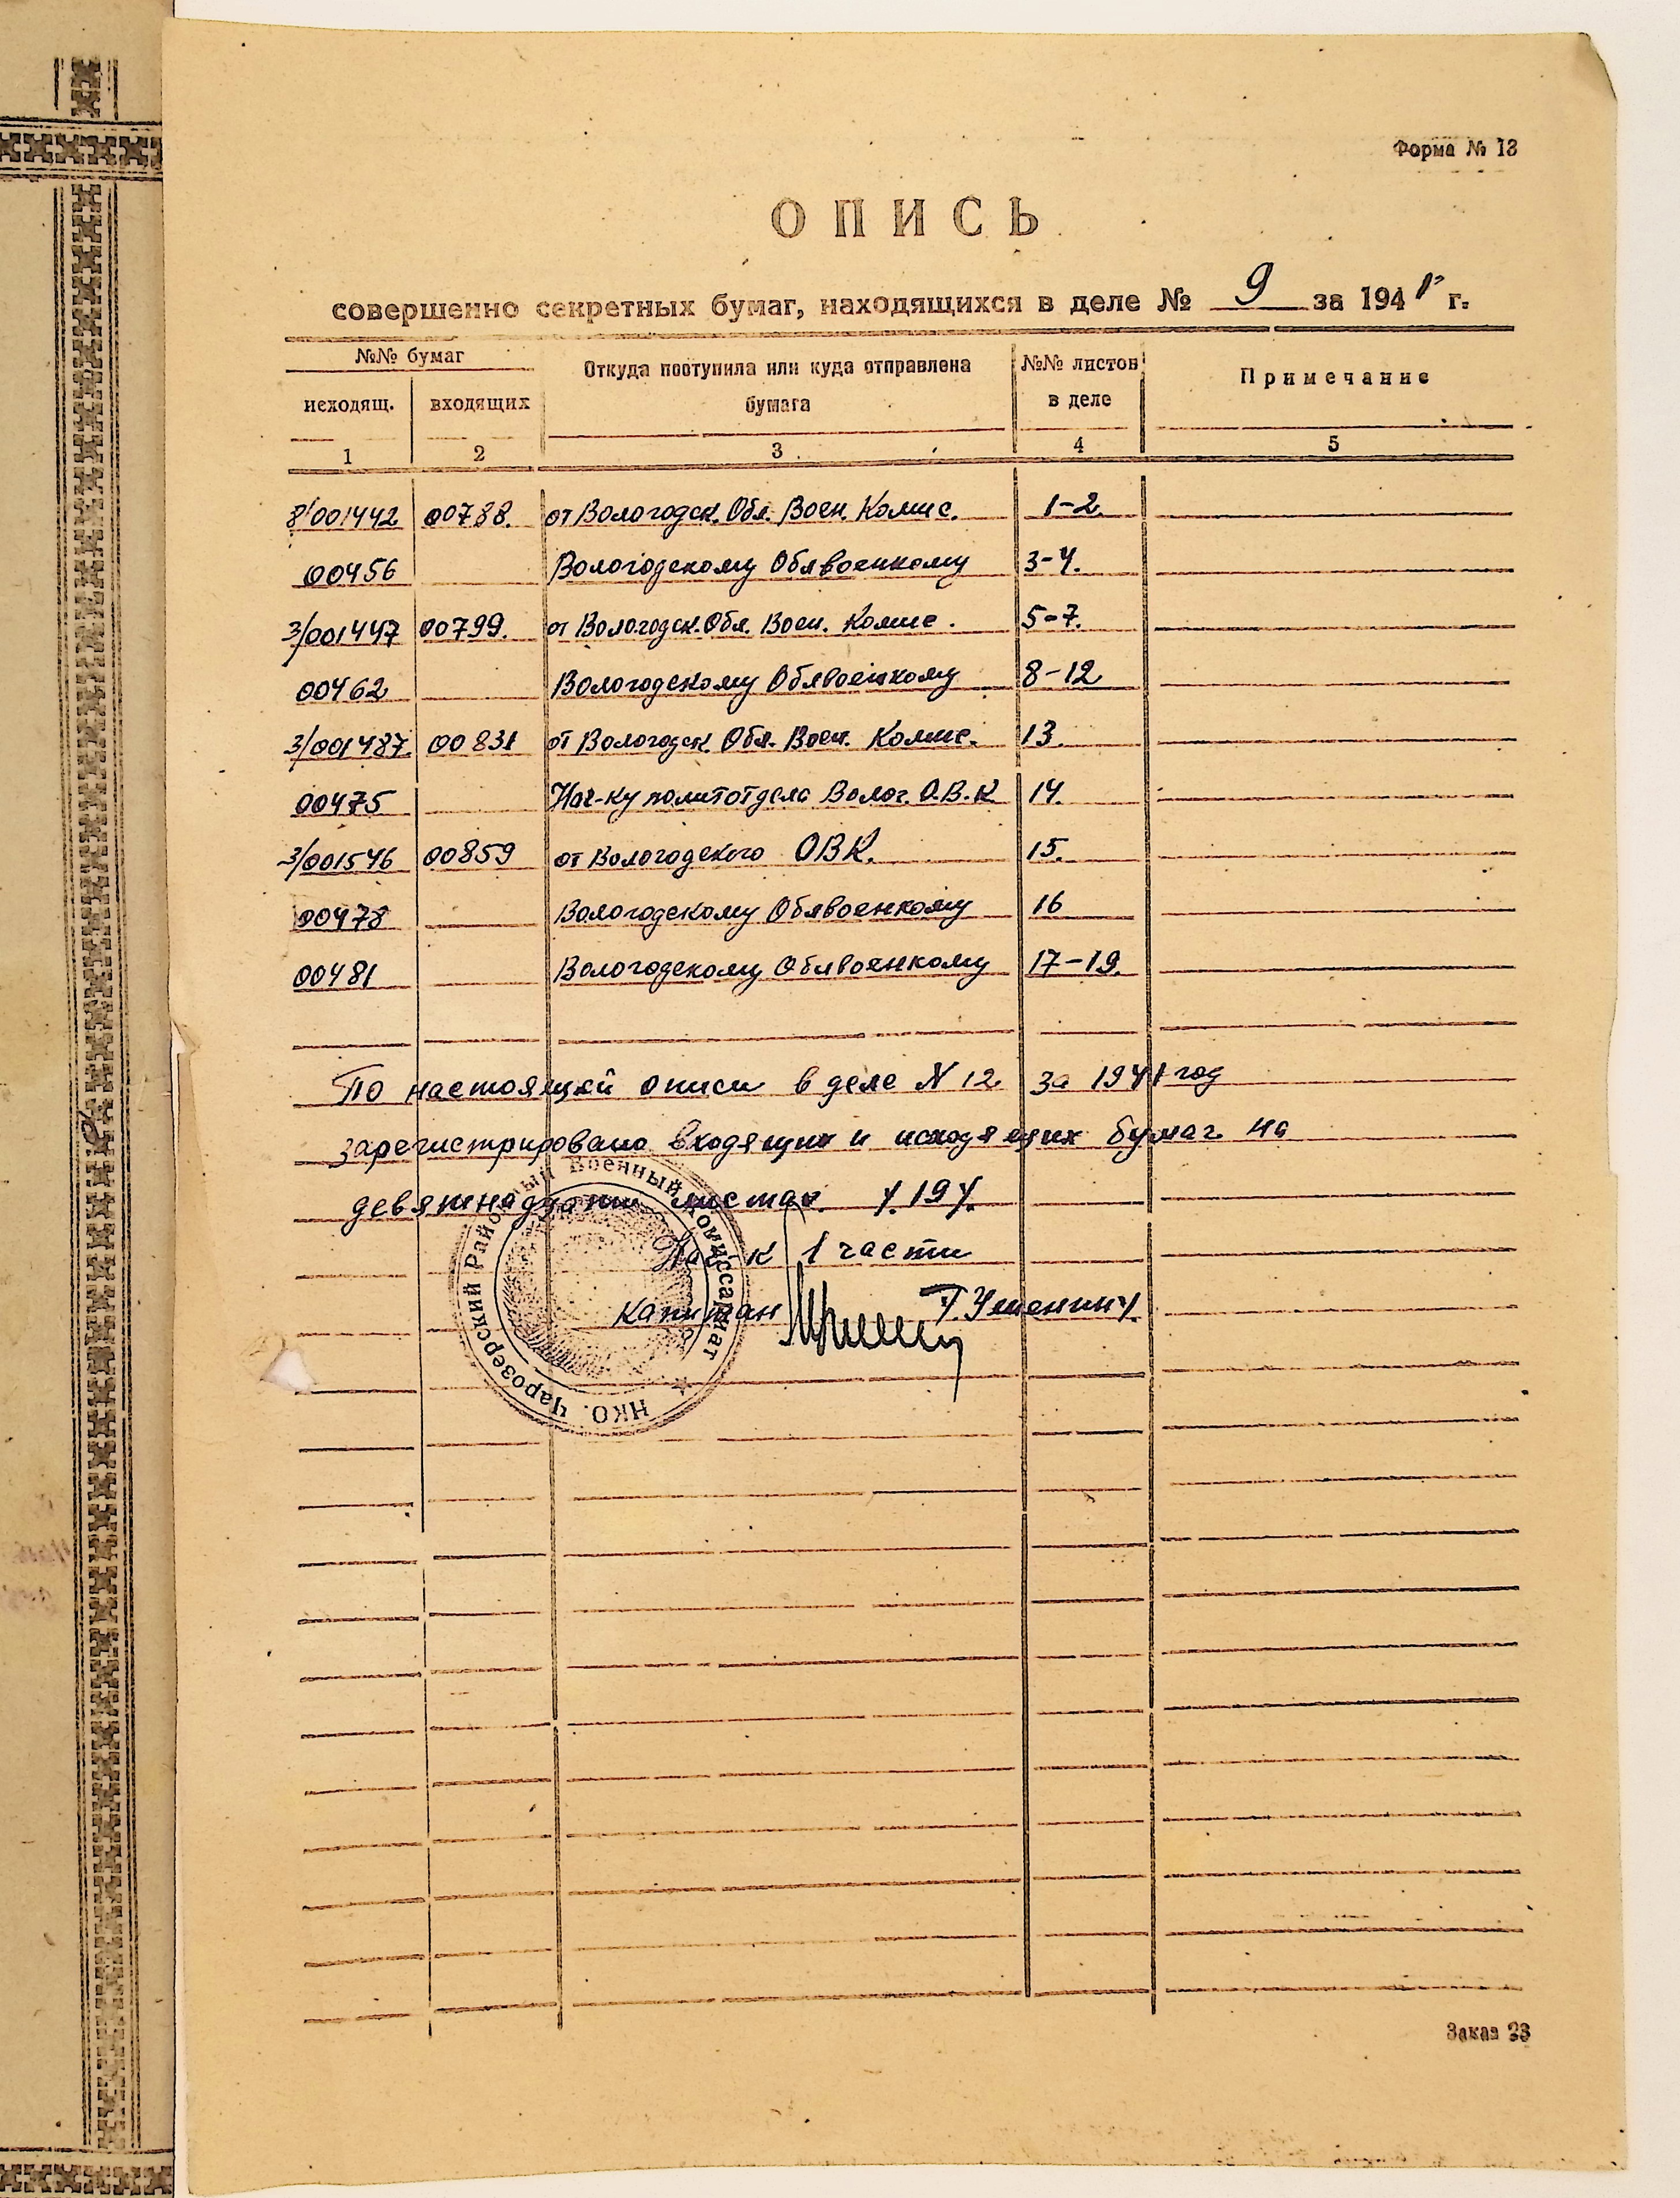 Форма № 13
ОПИСЬ
совершенно секретных бумаг, находящихся в деле № 9 за 1941 г.
№№ бумаг Откуда поступила или куда отправлена №№ листов Примечание
исходящ. входящих бумага в деле
1 2 3 4 5
8/001442 00788. от Вологодск. Обл. Воен. Комис. 1-2.
00456 Вологодскому Облвоенкому 3-4.
3/001447 00799. от Вологодск. Обл. Воен. Комис. 5-7.
00462 Вологодскому Облвоенкому 8-12
3/001487 00831 от Вологодск Обл. Воен. Комис. 13.
00475 Нач-ку политотдела Волог. О.В.К 14.
3/001546 00859 от Вологодского ОВК. 15.
00478 Вологодскому Облвоенкому 16
00481 Вологодскому Облвоенкому 17-19.
По настоящей описи в деле N 12 за 1941 год
зарегистрировано входящих и исходящих бумаг на
девятнадцати листах. /.19/.
Нач-к 1 части
Капитан
НКО. Чарозерский Районный Военный Комиссариат
Заказ 23